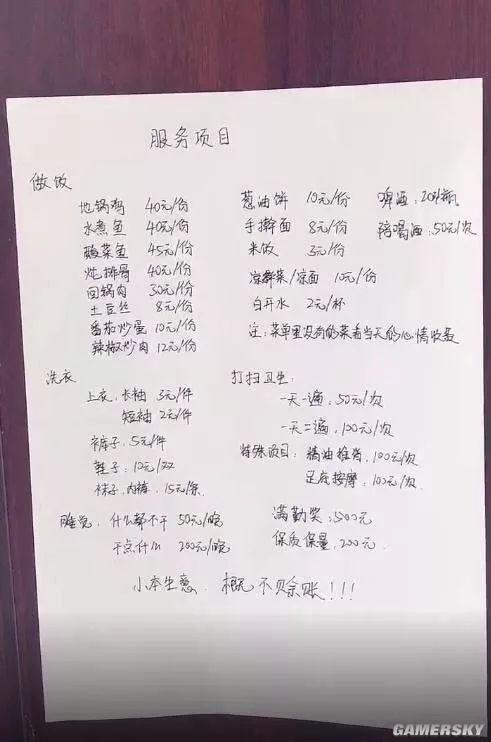 服务项目
做饭
地锅鸡 40元/份
水煮鱼 40元/份
酸菜鱼 45元/份
炖排骨 40元/份
回锅肉 30元/份
土豆丝 8元/份
番茄炒蛋 10元/份
辣椒炒肉 12元/份
葱油饼 10元/份
手擀面 8元/份
米饭 3元/份
凉拌菜/凉面 10元/份
白开水 2元/杯
注:菜单里没有的菜看当天的心情收费
啤酒:20元/瓶
陪喝酒:50元/次
洗衣
上衣:长袖 3元/件
短袖 2元/件
裤子:5元/件
鞋子:10元/双
袜子、内裤:15元/条
打扫卫生:
一天一遍,50元/次
一天二遍,100元/次
特殊项目:精油推背,100元/次
足底按摩,100元/次
睡觉,什么都不干 50元/晚
干点什么 200元/晚
满勤奖:500元
保质保量:200元
小本生意,概不赊账!!!
GAMERSKY